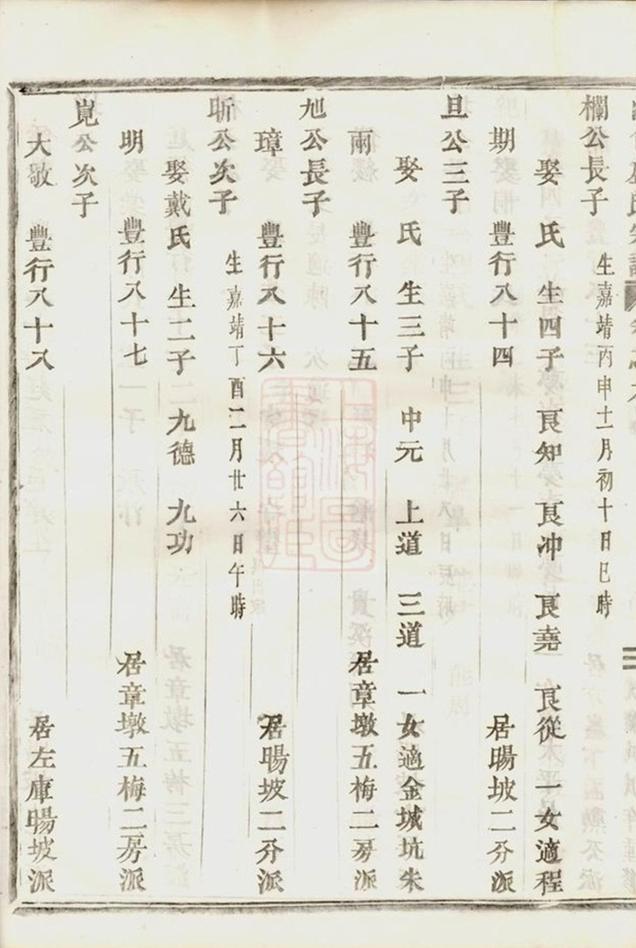 欄公長子 生嘉靖丙申十一月初十日巳時
娶 氏 生四子 良知 良冲 良堯 良從 一女適程
期 豐行八十四 居暘坡二分派
旦公三子
娶 氏 生三子 中元 上道 三道 一女適金城坑朱
兩 豐行八十五 居章墩五梅二房派
旭公長子
璋 豐行八十六 居暘坡二分派
昕公次子 生嘉靖丁酉二月廿六日午時
娶戴氏 生二子 九德 九功
明 豐行八十七 居章墩五梅二房派
冕公次子
大敬 豐行八十八 居左庫暘坡派